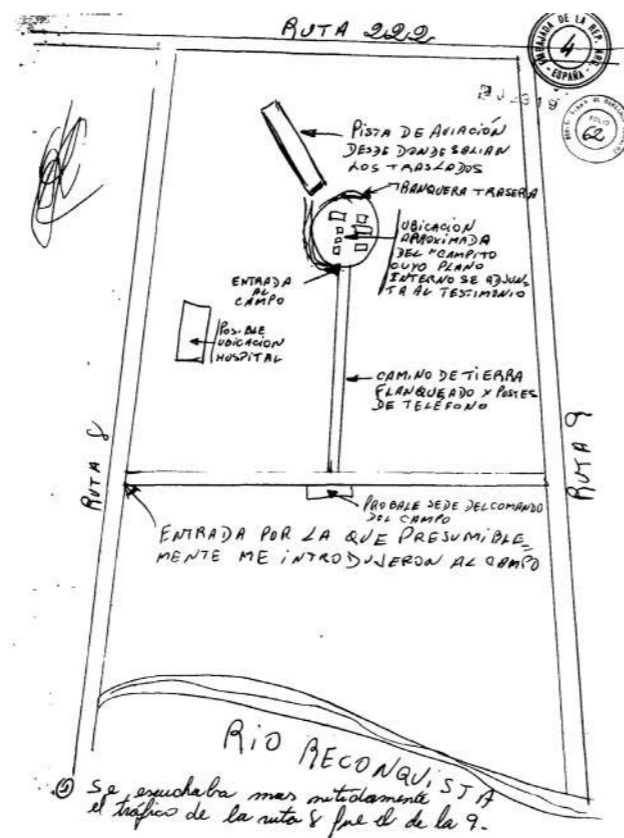 RUTA 222
EMBAJADA DE LA REP.
4
ESPAÑA
FOLIO
62
PISTA DE AVIACIÓN
DESDE DONDE SALIAN
LOS TRASLADOS
TRANQUERA TRASERA
UBICACION
APROXIMADA
DEL "CAMPITO
CUYO PLANO
INTERNO SE ADJUN_
TA AL TESTIMONIO
ENTRADA
AL
CAMPO
POSIBLE
UBICACION
HOSPITAL
CAMINO DE TIERRA
FLANQUEADO X POSTES
DE TELÉFONO
RUTA 8
RUTA 9
PROBALE SEDE DEL COMANDO
DEL CAMPO
ENTRADA POR LA QUE PRESUMIBLE_
MENTE ME INTRODUJERON AL CAMPO
RIO RECONQUISTA
Se escuchaba mas nitidamente
el tráfico de la ruta 8 que el de la 9.